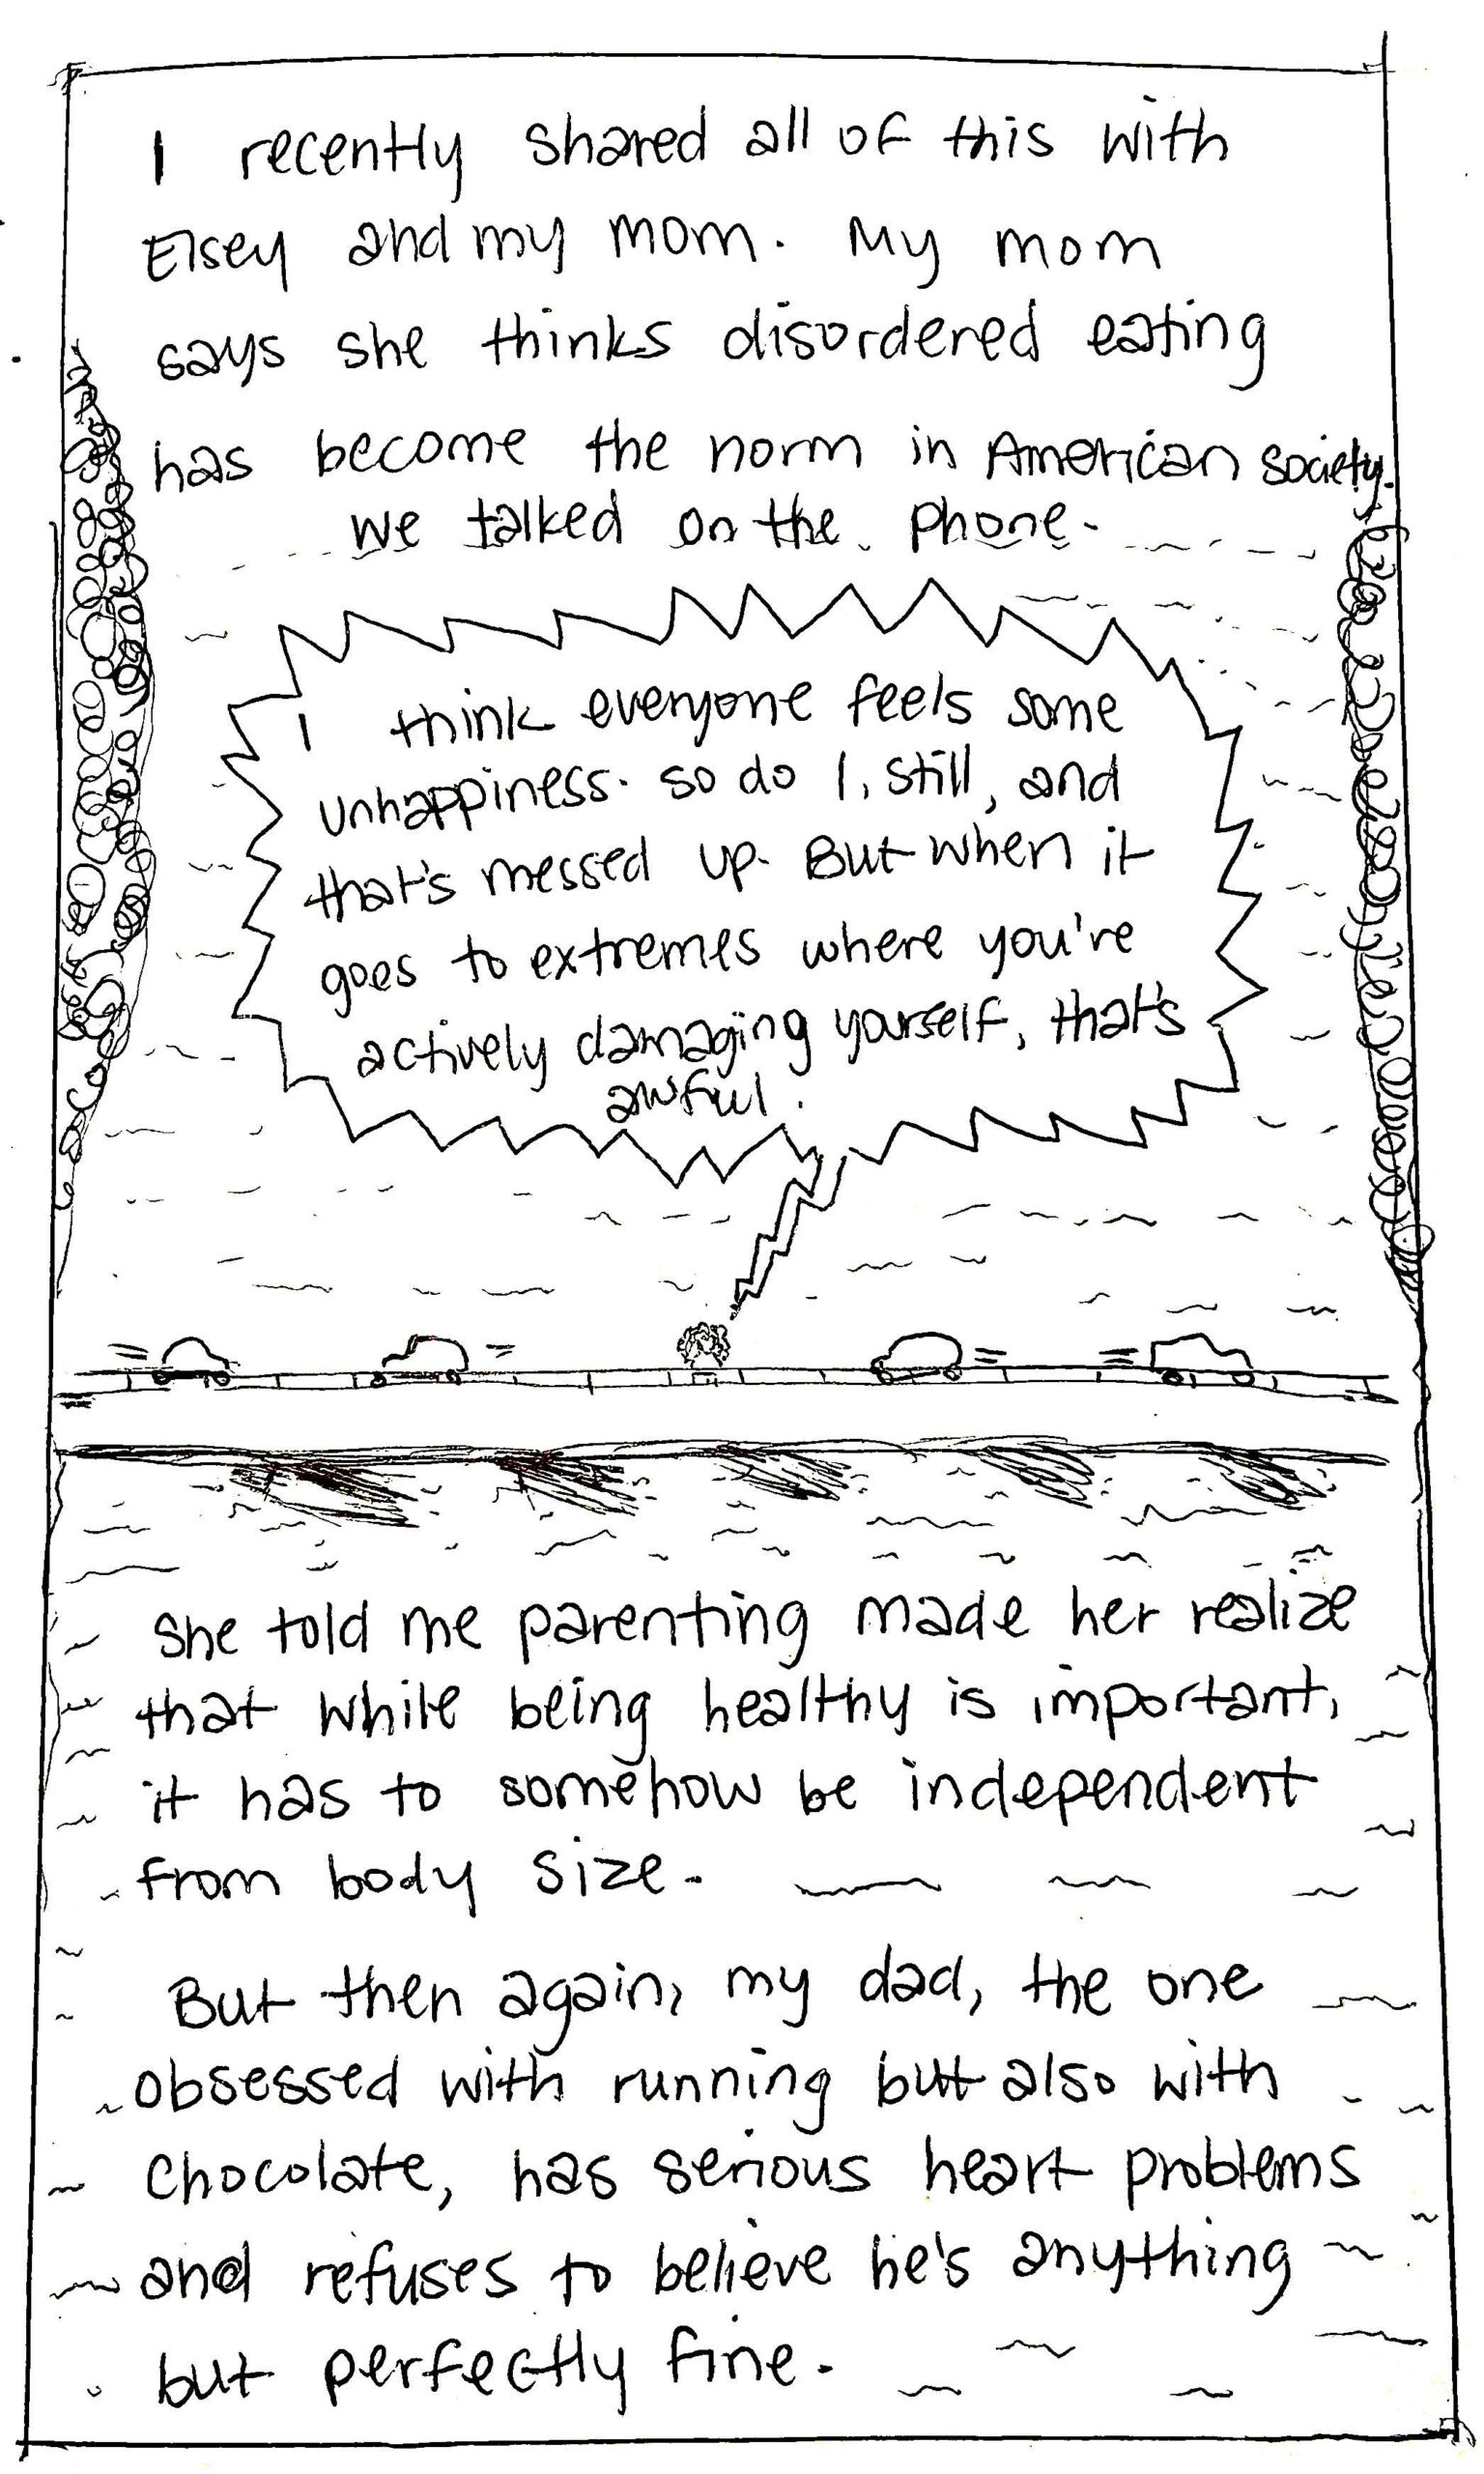 I recently shared all of this with
Elsey and my mom. My mom
says she thinks disordered eating
has become the norm in American society.
We talked on the phone.
I think everyone feels some
unhappiness. So do I, still, and
that's messed up. But when it
goes to extremes where you're
actively damaging yourself, that's
awful.
She told me parenting made her realize
that while being healthy is important,
it has to somehow be independent
from body size.
But then again, my dad, the one
obsessed with running but also with
chocolate, has serious heart problems
and refuses to believe he's anything
but perfectly fine.